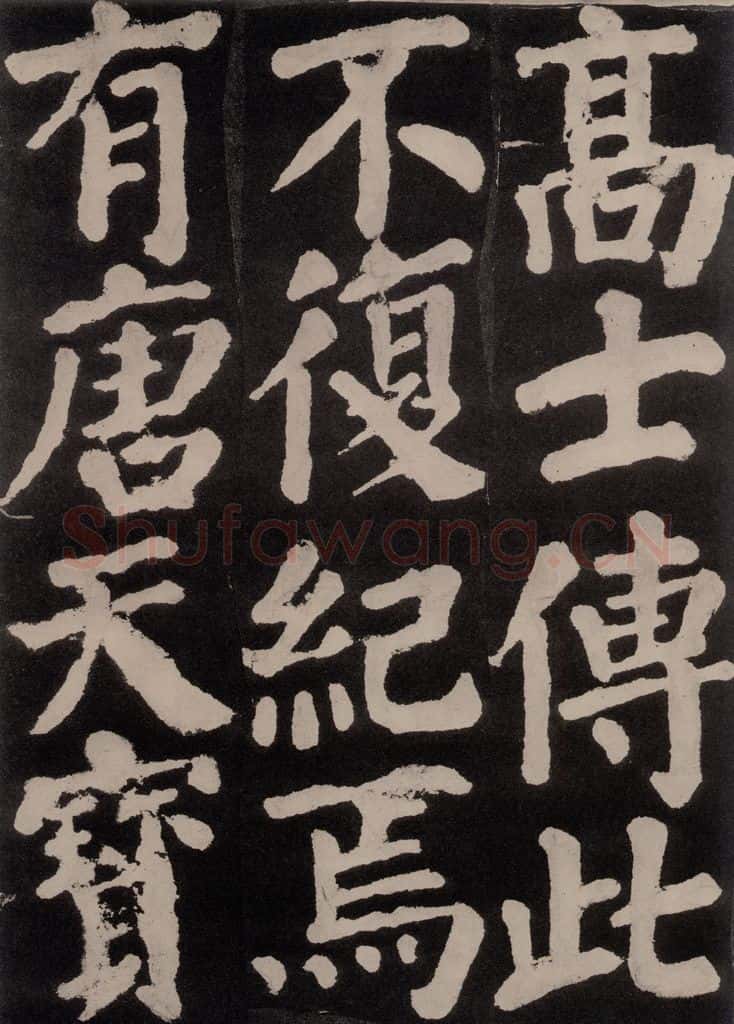 高士傳此
不復紀焉
有唐天寶
Shufawang.CN